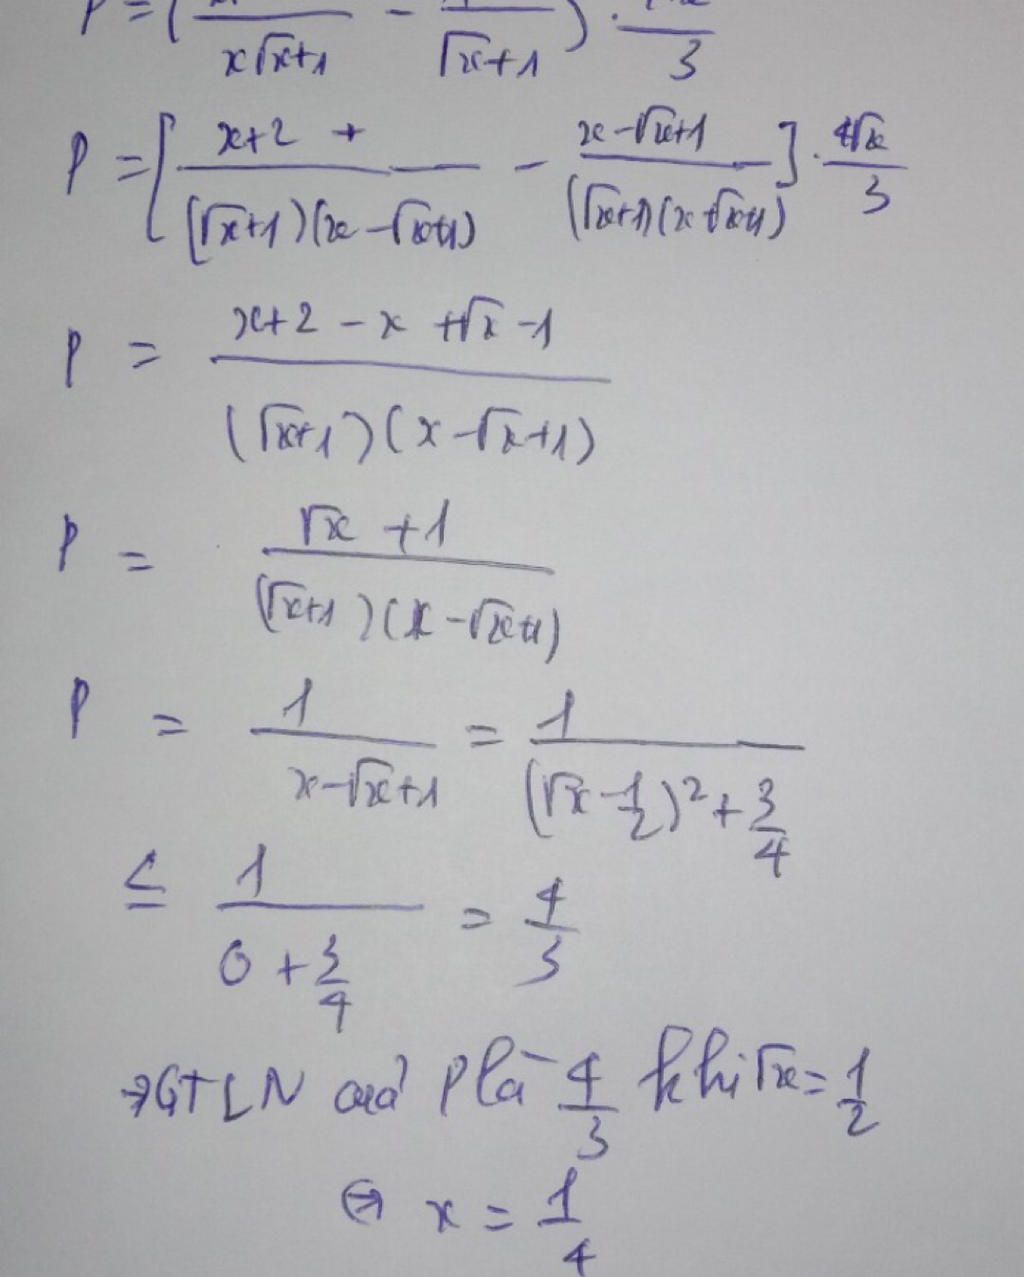 P = ( / x√x+1 - / √x+1 ) . / 3
P = [ x+2 + / (√x+1)(x-√x+1) - x-√x+1 / (√x+1)(x-√x+1) ] . 4√x / 3
P = x+2 - x +√x -1 / (√x+1)(x-√x+1)
P = √x +1 / (√x+1)(x-√x+1)
P = 1 / x-√x+1 = 1 / (√x - 1/2)² + 3/4
≤ 1 / 0 + 3/4 = 4/3
→ GTLN cuả P là 4/3 khi √x = 1/2
⇔ x = 1/4